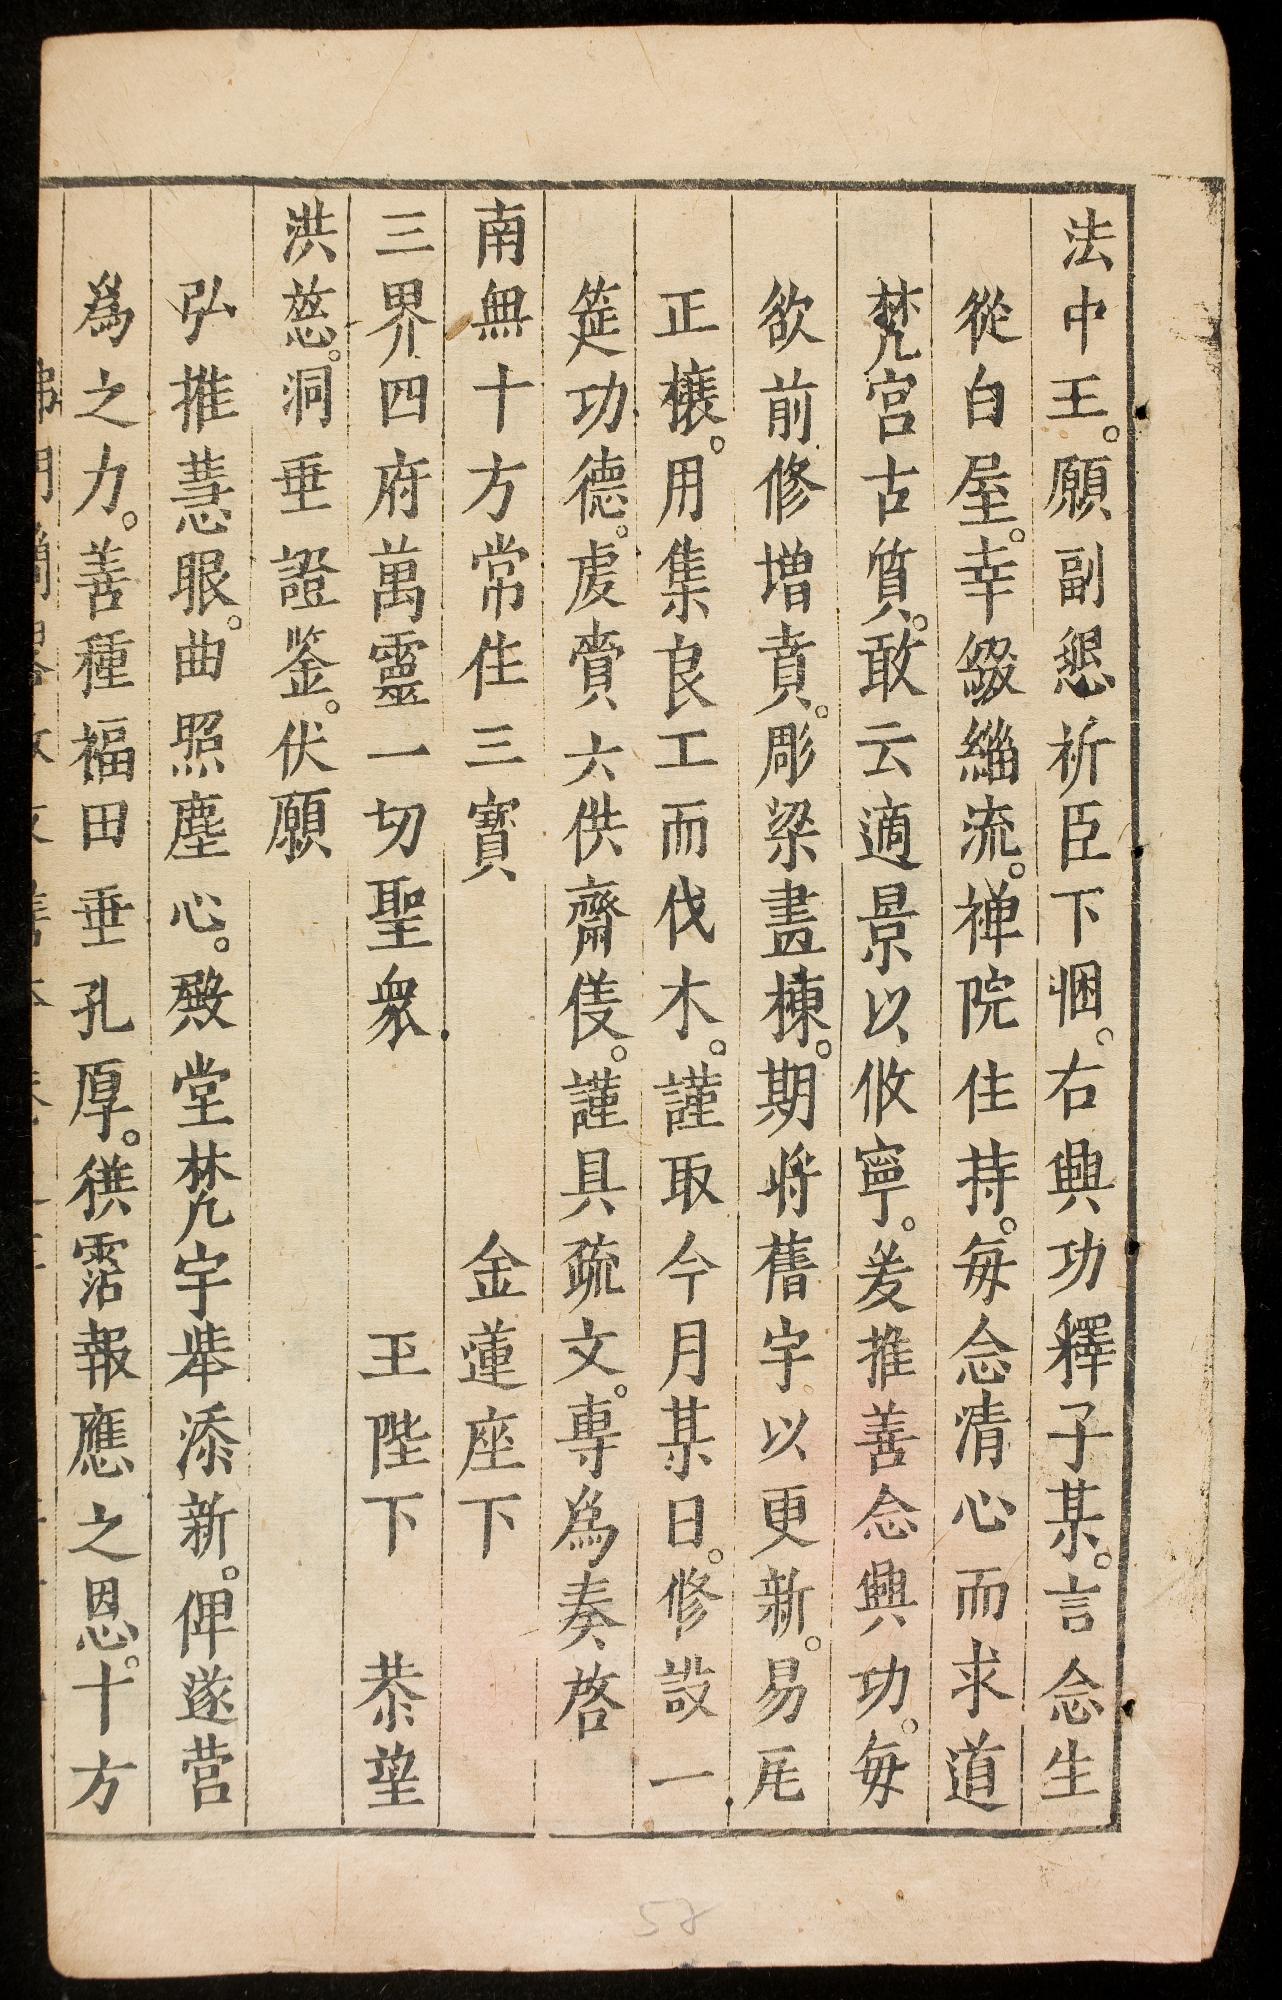 法中王。願副懇祈臣下悃。右興功釋子某。言念生
從白屋。幸綴緇流。禅院住持。每念清心而求道
梵宮古質。敢云適景以攸寧。爰推善念興功。每
欲前修增賁。彫梁畫棟。期将舊宇。以更新。易𤬦
正榱。用集良工而伐木。謹取今月某日。修設一
筵功德。虔賷六供齋𠊓。謹具疏文。專為奏啓
南無十方常住三寳　金蓮座下
三界四府萬靈一切聖衆　玉陛下　恭望
洪慈。洞垂證鉴。伏願
弘推慧眼。曲照塵心。殿堂梵宇㪯添新。俾遂营
為之力。善種福田垂孔厚。𥛱霑報應之恩。十方